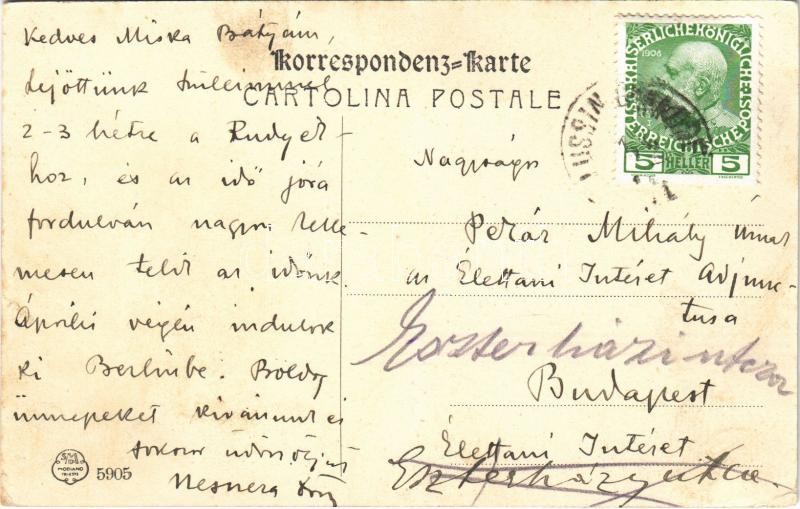 Kedves Miska Bátyám,
Lejöttünk szüleimmel
2-3 hétre a Rudyék-
hoz, és az idő jóra
fordulván nagyon kelle-
mesen telik az időnk.
Április végén indulok
ki Berlinbe. Boldog
ünnepeket kívánunk és
sokszor üdvözöljük
Korrespondenz-Karte
CARTOLINA POSTALE
Nagyságos
Pekár Mihály úrnak
az Élettani Intézet Adjunk-
tusa
Eszterházi utcza
Budapest
Élettani Intézet
Eszterházy utca.
KAISERLICHE KÖNIGLICHE ÖSTERREICHISCHE POST
1908
5 HELLER 5
LUSSIN
SMD
MODIANO
TRIESTE
5905